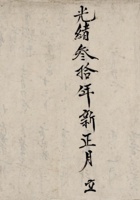 光緒叁拾年新正月 立